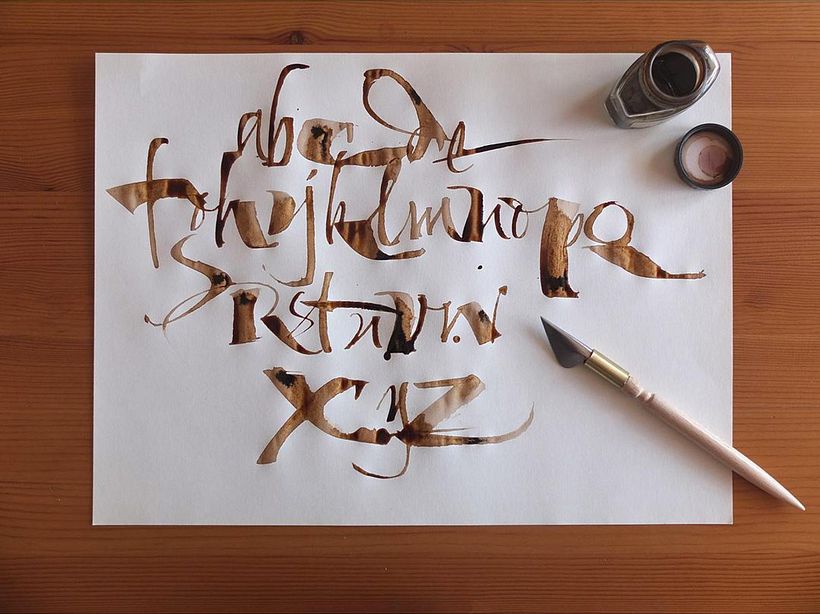 abcde
fghijklmnopQ
Rstuvw
xyz